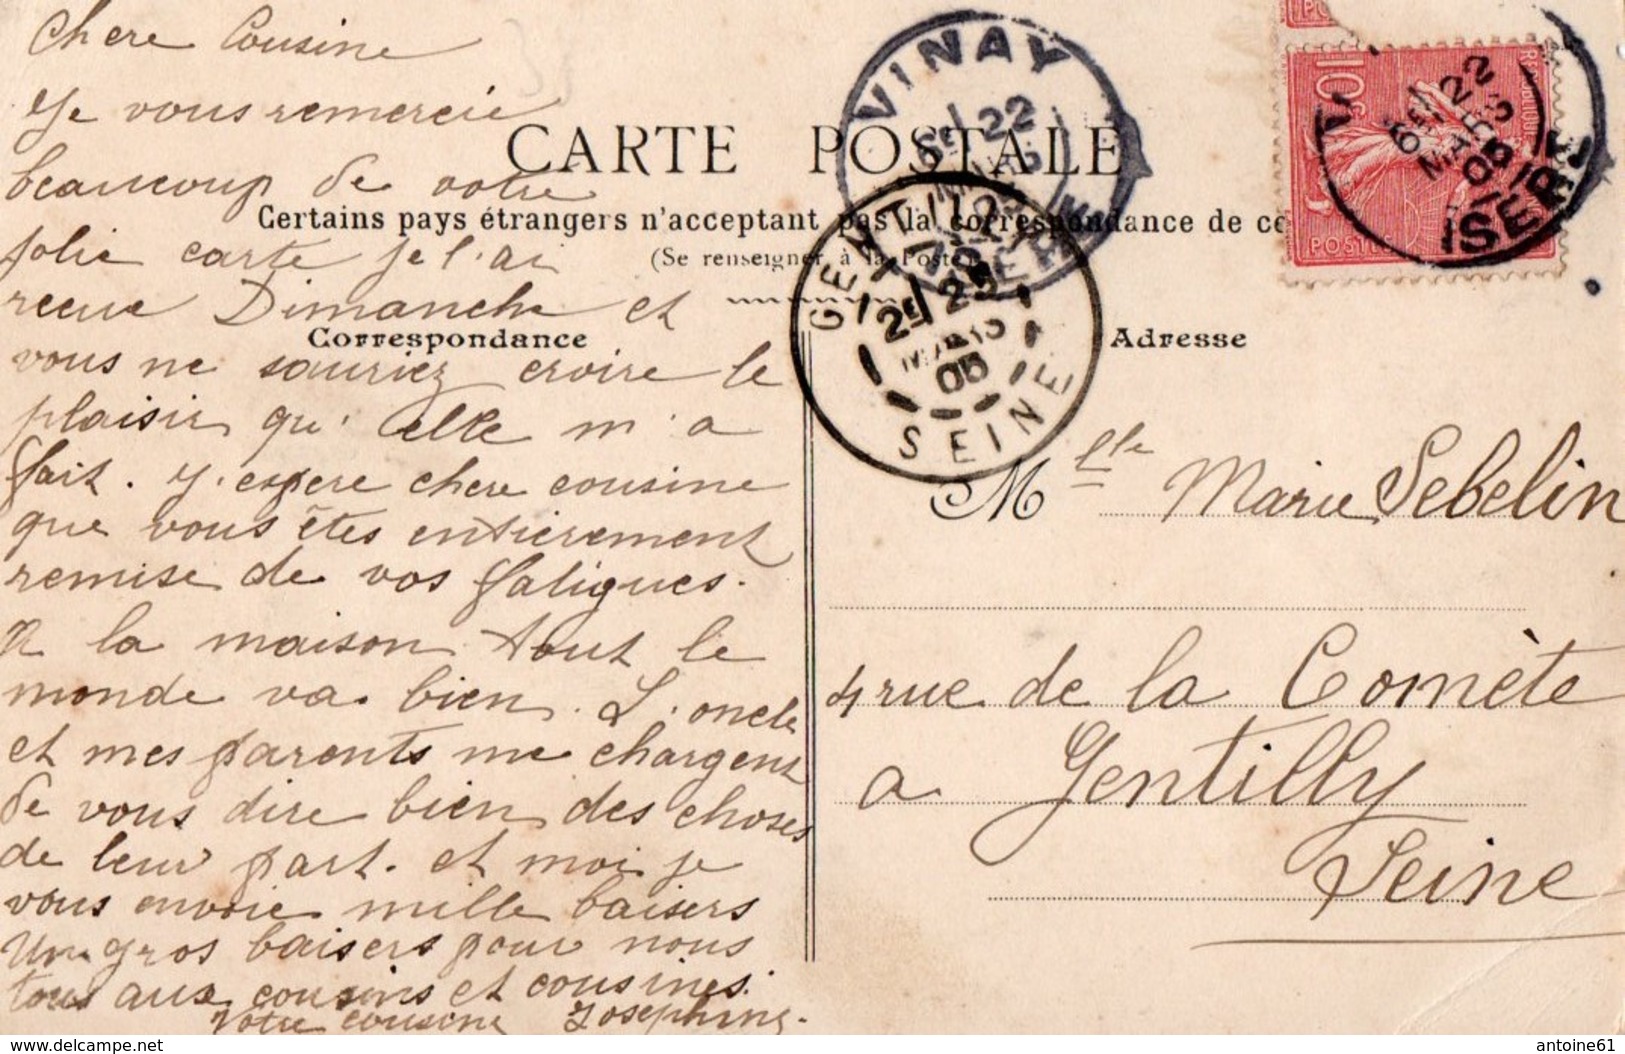 Chere Cousine
Je vous remercie
beaucoup de votre
jolie carte je l'ai
recue Dimanche et
vous ne sauriez croire le
plaisir qu' elle m'a
fait. J'espere chere cousine
que vous êtes entièrement
remise de vos fatigues.
A la maison tout le
monde va bien. L'oncle
et mes parents me chargent
de vous dire bien des choses
de leur part. et moi je
vous envoie mille baisers
Un gros baisers pour nous
tous aux cousins et cousines.
Votre cousine Josephine.
CARTE POSTALE
Certains pays étrangers n'acceptant pas la correspondance de ce
(Se renseigner à la Poste)
Correspondance
Adresse
VINAY
6E 22
MARS
05
ISERE
GENTILLY
2E 23
MARS
05
SEINE
10c
POSTES
6E 22
MARS
05
ISERE
Mlle Marie Sebelin
4 rue de la Comète
a Gentilly
Seine
delcampe.net
antoine61